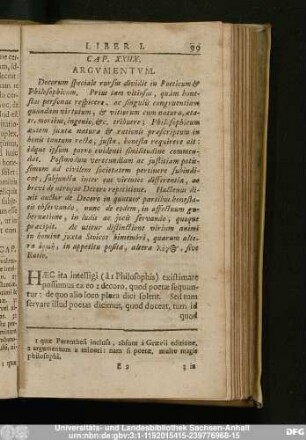 LIBER I. 99
CAP. XXIIX.
ARGVMENTVM.
Decorum speciale rursus dividit in Poeticum &
Philosophicum. Prius tam vitiosas, quam hone-
stas personas respicere, ac singulis congruentiam
quandam virtutum, & vitiorum cum natura, æta-
te, moribus, ingenio, &c. tribuere; Philosophicum
autem juxta natura & rationis præscriptum in
bonis tantum recta, justa, honesta requirere ait:
idque ipsum porro evidenti similitudine commen-
dat. Postmodum verecundiam ac justitiam potis-
simum ad civilem societatem pertinere subindi-
cat, subjuncta inter eas virtutes differentia, ac
brevi de utroque Decoro repetitione. Hactenus di-
xit auctor de Decoro in quatuor partibus honestatis
observando, nunc de eodem, in affectuum gu-
bernatione, in ludis ac jocis servando, quæque
præcipit. At utitur distinctione virium animi
in homine juxta Stoicos bimembri, quarum alte-
ra ὁρμή, in appetitu posita, altera λόγος, sive
Ratio.
HÆC ita intelligi (à 1 Philosophis) existimare
possumus ex eo 2 decoro, quod poetæ sequun-
tur: de quo alio loco plura dici solent. Sed tum
servare illud poetas dicimus, quod deceat, cum id
quod
1 quæ Parenthesi inclusa, absunt à Grævii editione,
& argumentum à minori: nam si poetæ, multo magis
philosophi.
E 2 3 in
Universitäts- und Landesbibliothek Sachsen-Anhalt
urn:nbn:de:gbv:3:1-1192015415-239776960-15